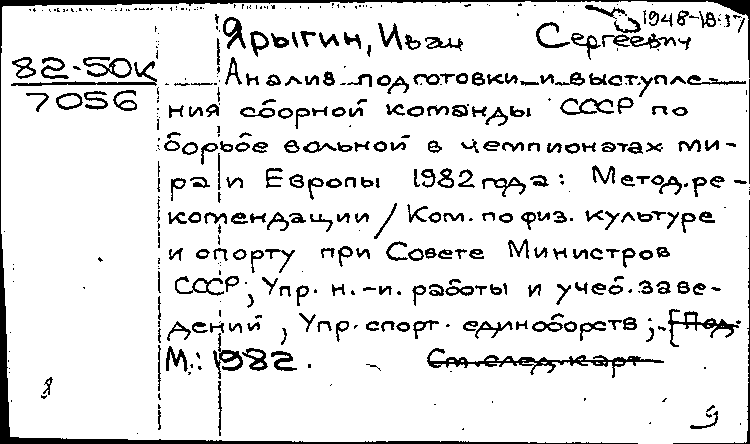 1948-
Ярыгин, Иван Сергеевич
82-50К
7056
Анализ подготовки и выступле-
ния сборной команды СССР по
борьбе вольной в чемпионатах ми-
ра и Европы 1982 года: Метод. ре-
комендации / Ком. по физ. культуре
и спорту при Совете Министров
СССР, Упр. н.-и. работы и учеб. заве-
дений, Упр. спорт. единоборств; [Под.
М.: 1982. См. след. карт
8
9